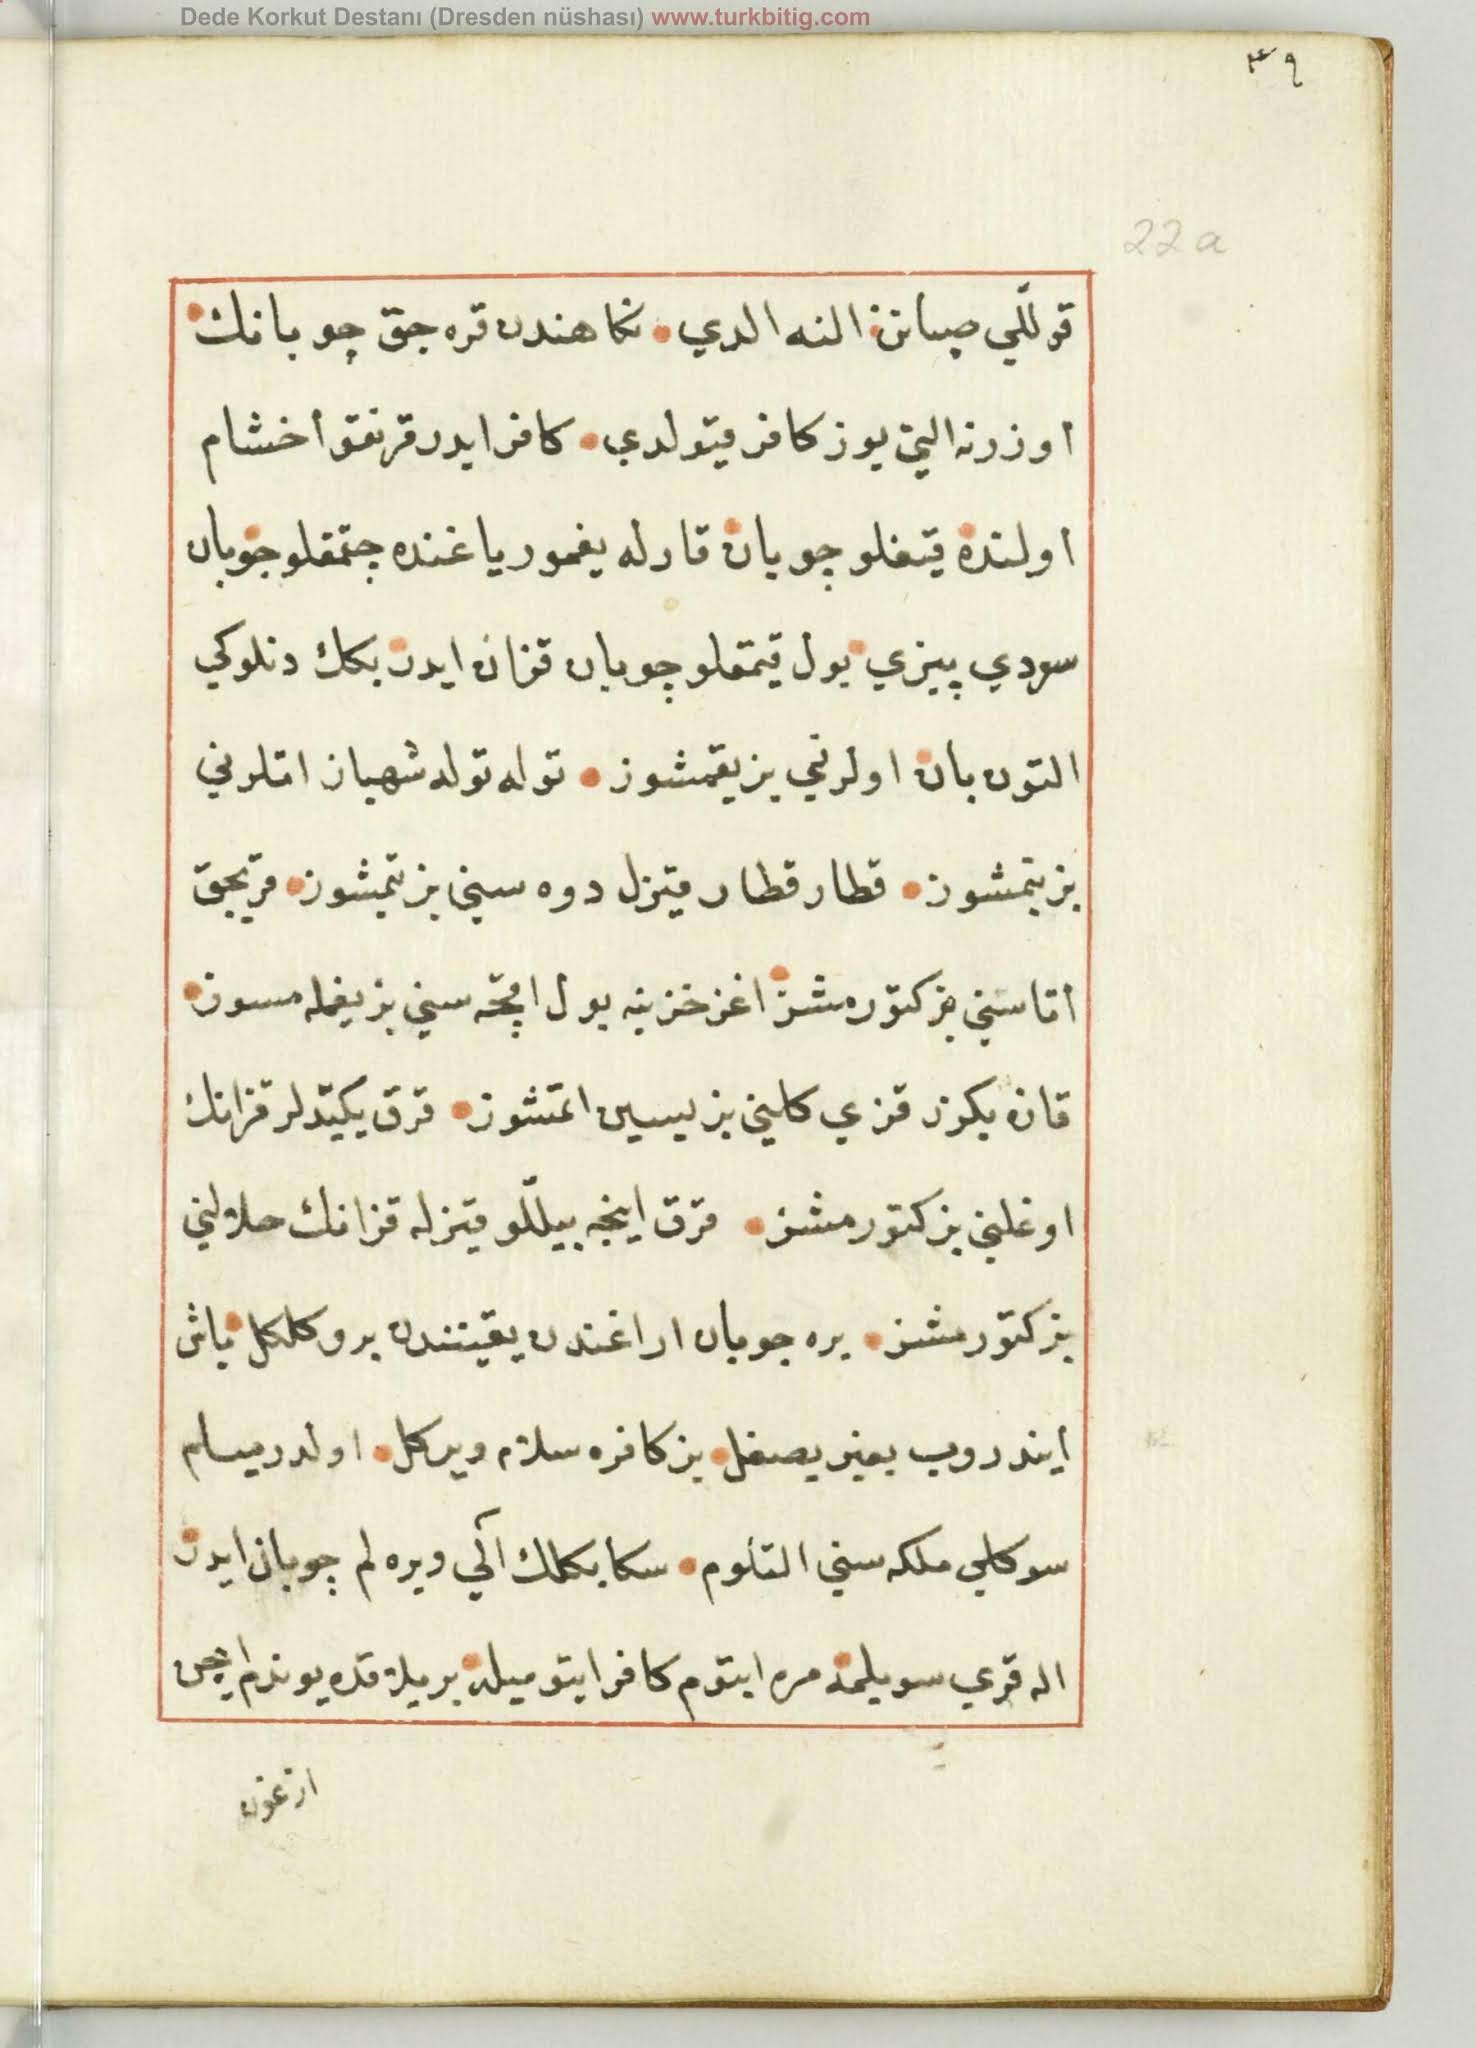 Dede Korkut Destanı (Dresden nüshası) www.turkbitig.com
٣٩
22a
قوللي صپانن النه الدي نكاهندن قره جق چوبانك
اوزرنه التي يوز كافر قيتولدي كافر ايدر قرنغو اخشام
اولنده قيغلو چوبان قارله يغمور ياغنده چقمقلو چوبان
سودي پيزي بول قيمقلو چوبان قزان ايدن بكك دنلوكي
التون بان اولرني بز يقمشوز توله توله شهباز اتلرني
بز بتمشوز قطار قطار قيزل دوه سني بز يتمشوز قريجق
اناسني بز كتورمشز اغز خزينه بول اقچه سني بز يغمله مسوز
قاز بكوز قزي كليني بز يسير اتمشوز قرق يكيتدلر قزانك
اوغلني بز كتورمشز قرق اينجه بيللو قيزله قزانك حلالني
بز كتورمشز بره چوبان اراغندن يقينندن برو كلكل باش
ايندروب بغير بصغل بز كافره سلام ويركل اولدرميلم
سوكلي ملكه سني التلوم سكا بكلك آلي ويره لم چوبان ايدر
اله قري سويلمه مره ايتوم كافر ايتوميله بر يلاقده يوندم ايچن
ازغون